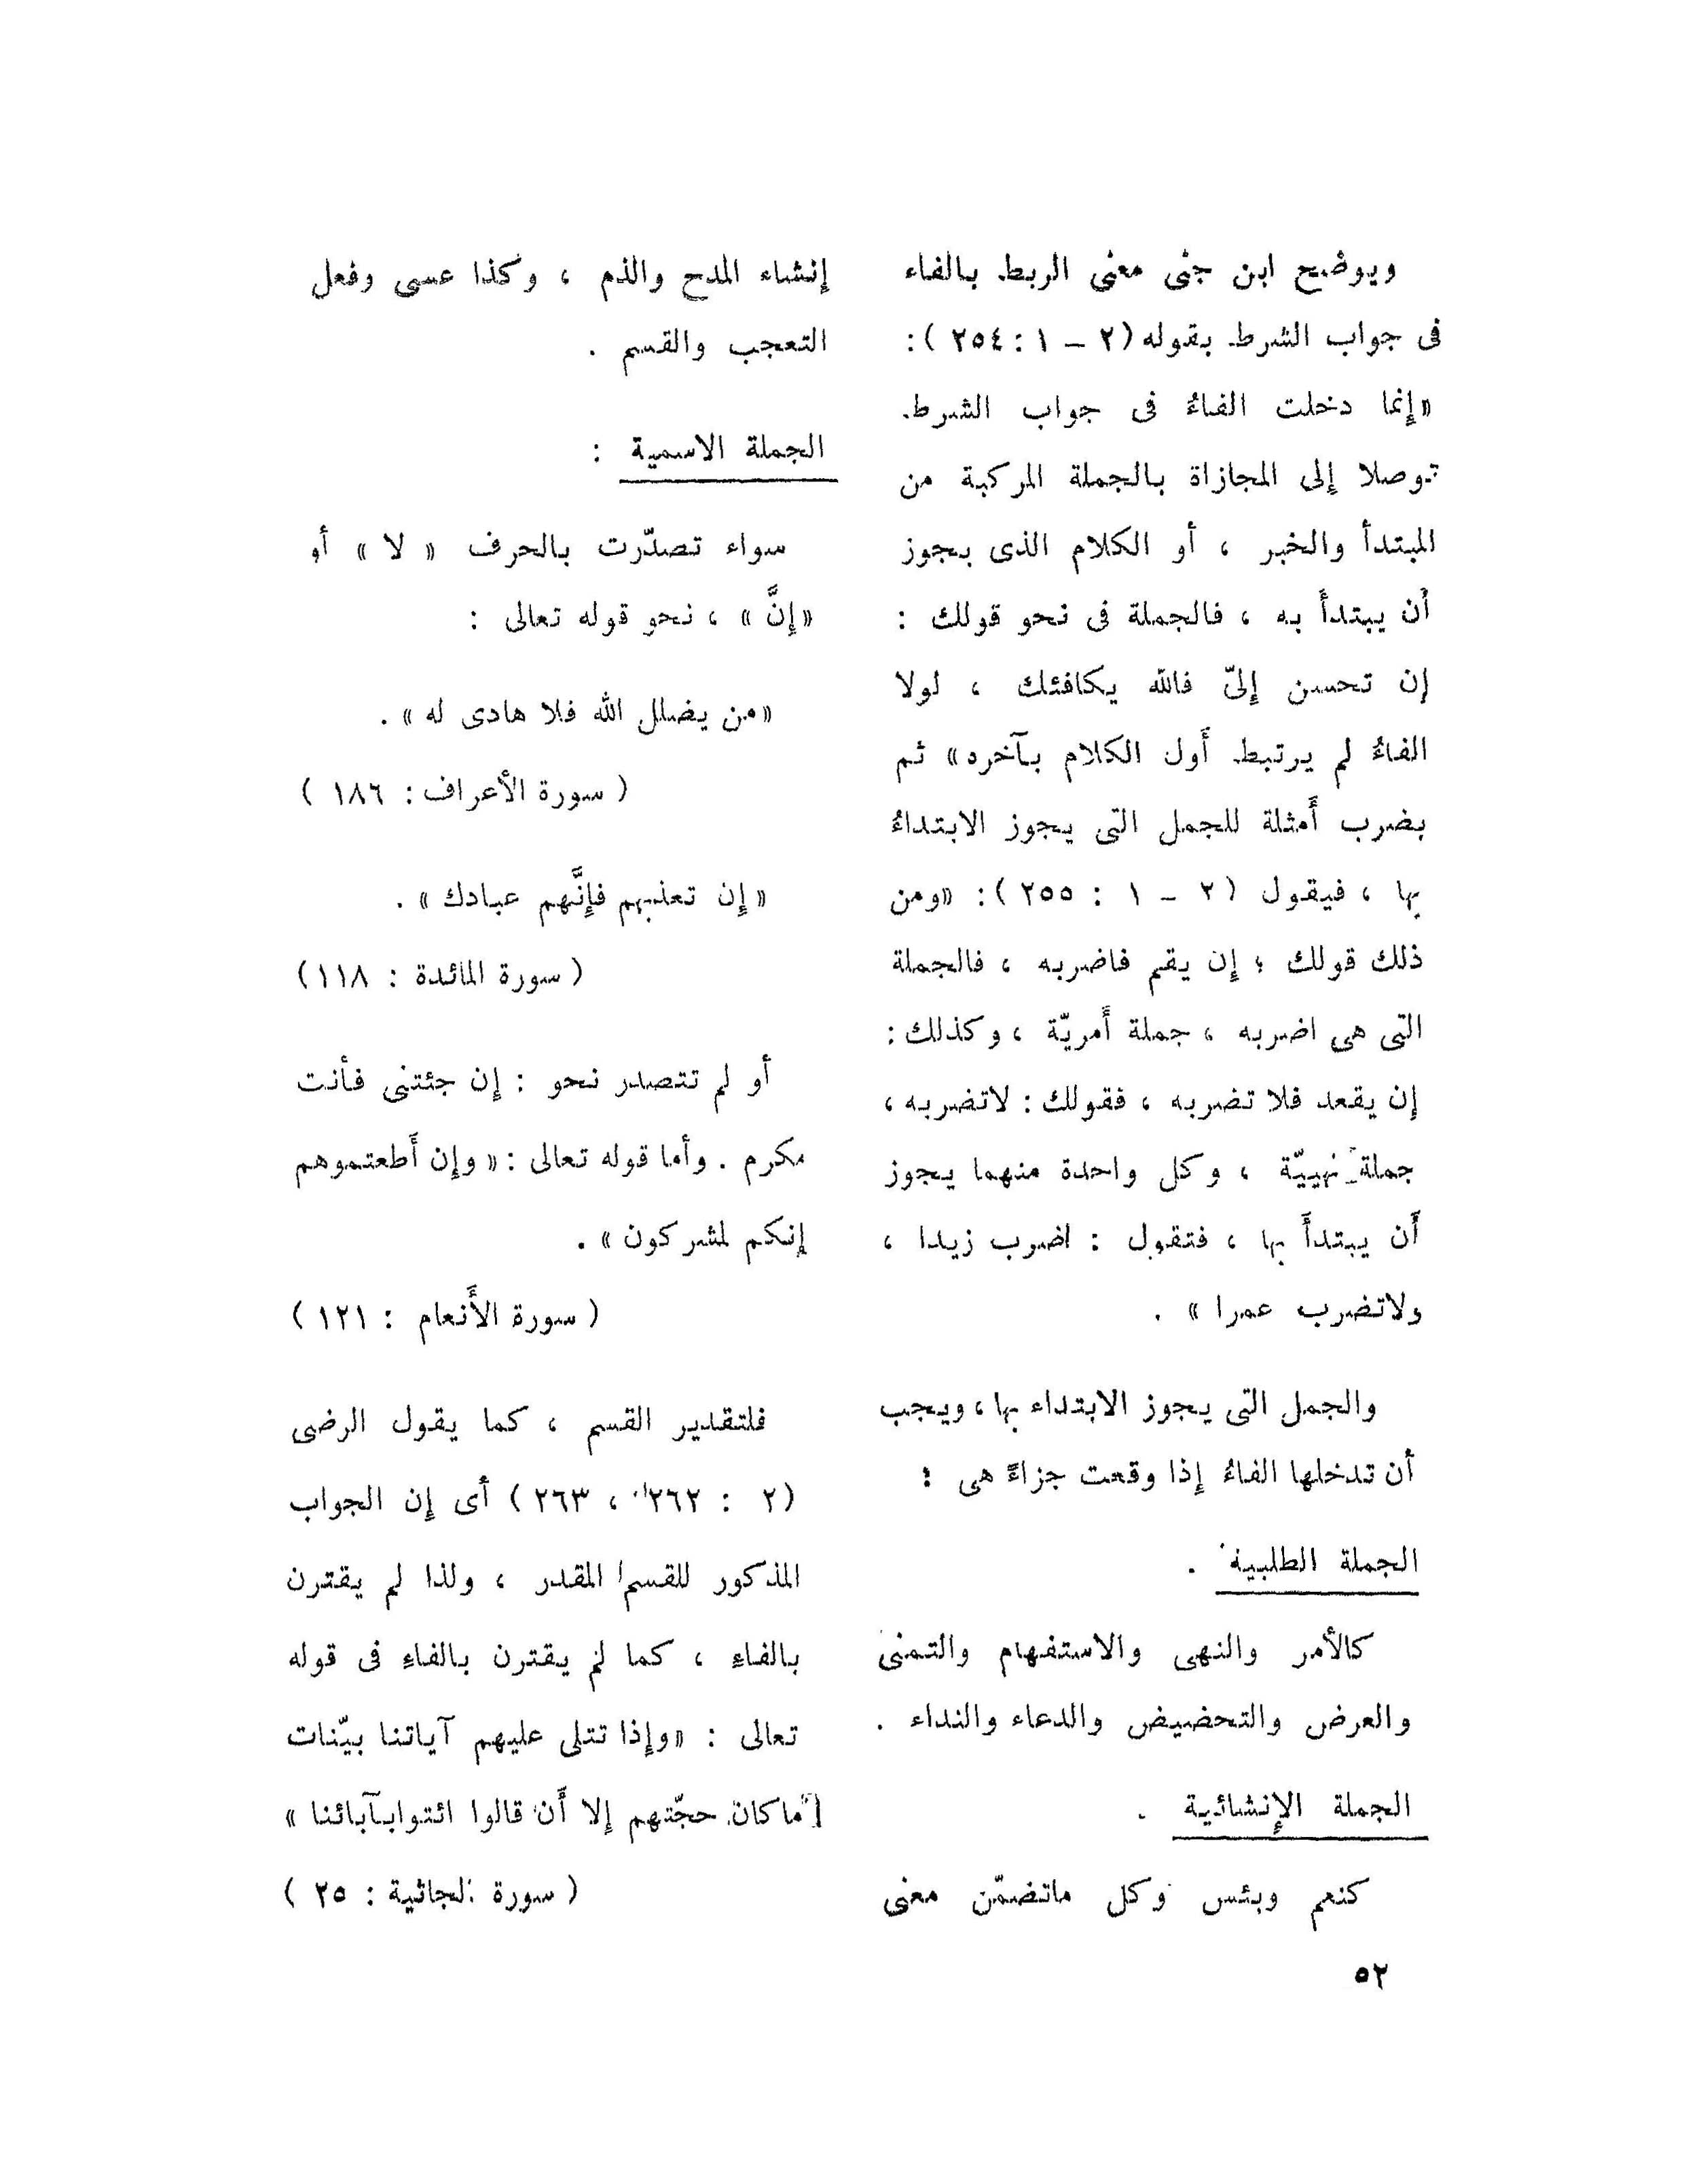 ويوضح ابن جنى معنى الربط بالفاء
فى جواب الشرط بقوله (٢ – ١ : ٢٥٤ ) :
«إنما دخلت الفاءُ فى جواب الشرط
توصلا إلى المجازاة بالجملة المركبة من
المبتدأ والخبر ، أو الكلام الذى يجوز
أن يبتدأَ به ، فالجملة فى نحو قولك :
إن تحسن إلىّ فالله يكافئك ، لولا
الفاءُ لم يرتبط أَول الكلام بآخره» ثم
يضرب أَمثلة للجمل التى يجوز الابتداءُ
بها ، فيقول (٢ – ١ : ٢٥٥ ) : «ومن
ذلك قولك ؛ إن يقم فاضربه ، فالجملة
التى هى اضربه ، جملة أَمريّة ، وكذلك :
إن يقعد فلا تضربه ، فقولك : لاتضربه ،
جملة نهييّة ، وكل واحدة منهما يجوز
أَن يبتدأَ بها ، فتقول : اضرب زيدا ،
ولاتضرب عمرا » .
والجمل التى يجوز الابتداء بها ، ويجب
أن تدخلها الفاءُ إذا وقعت جزاءً هى :
الجملة الطلبية .
كالأمر والنهى والاستفهام والتمنى
والعرض والتحضيض والدعاء والنداء .
الجملة الإنشائية .
كنعم وبئس وكل ماتضمّن معنى
إنشاء المدح والذم ، وكذا عسى وفعل
التعجب والقسم .
الجملة الاسمية :
سواء تصدّرت بالحرف « لا » أو
«إنَّ » ، نحو قوله تعالى :
«من يضلل الله فلا هادى له» .
( سورة الأعراف : ١٨٦ )
« إن تعذبهم فإنَّهم عبادك » .
( سورة المائدة : ١١٨)
أو لم تتصدر نحو : إن جئتنى فأنت
مكرم . وأما قوله تعالى : « وإن أَطعتموهم
إنكم لمشركون » .
( سورة الأَنعام : ١٢١ )
فلتقدير القسم ، كما يقول الرضى
(٢ : ٢٦٢ ، ٢٦٣ ) أى إن الجواب
المذكور للقسم المقدر ، ولذا لم يقترن
بالفاءِ ، كما لم يقترن بالفاءِ فى قوله
تعالى : «وإذا تتلى عليهم آياتنا بيّنات
ماكان حجّتهم إلا أَن قالوا ائتوابآبائنا »
( سورة الجاثية : ٢٥ )
٥٢